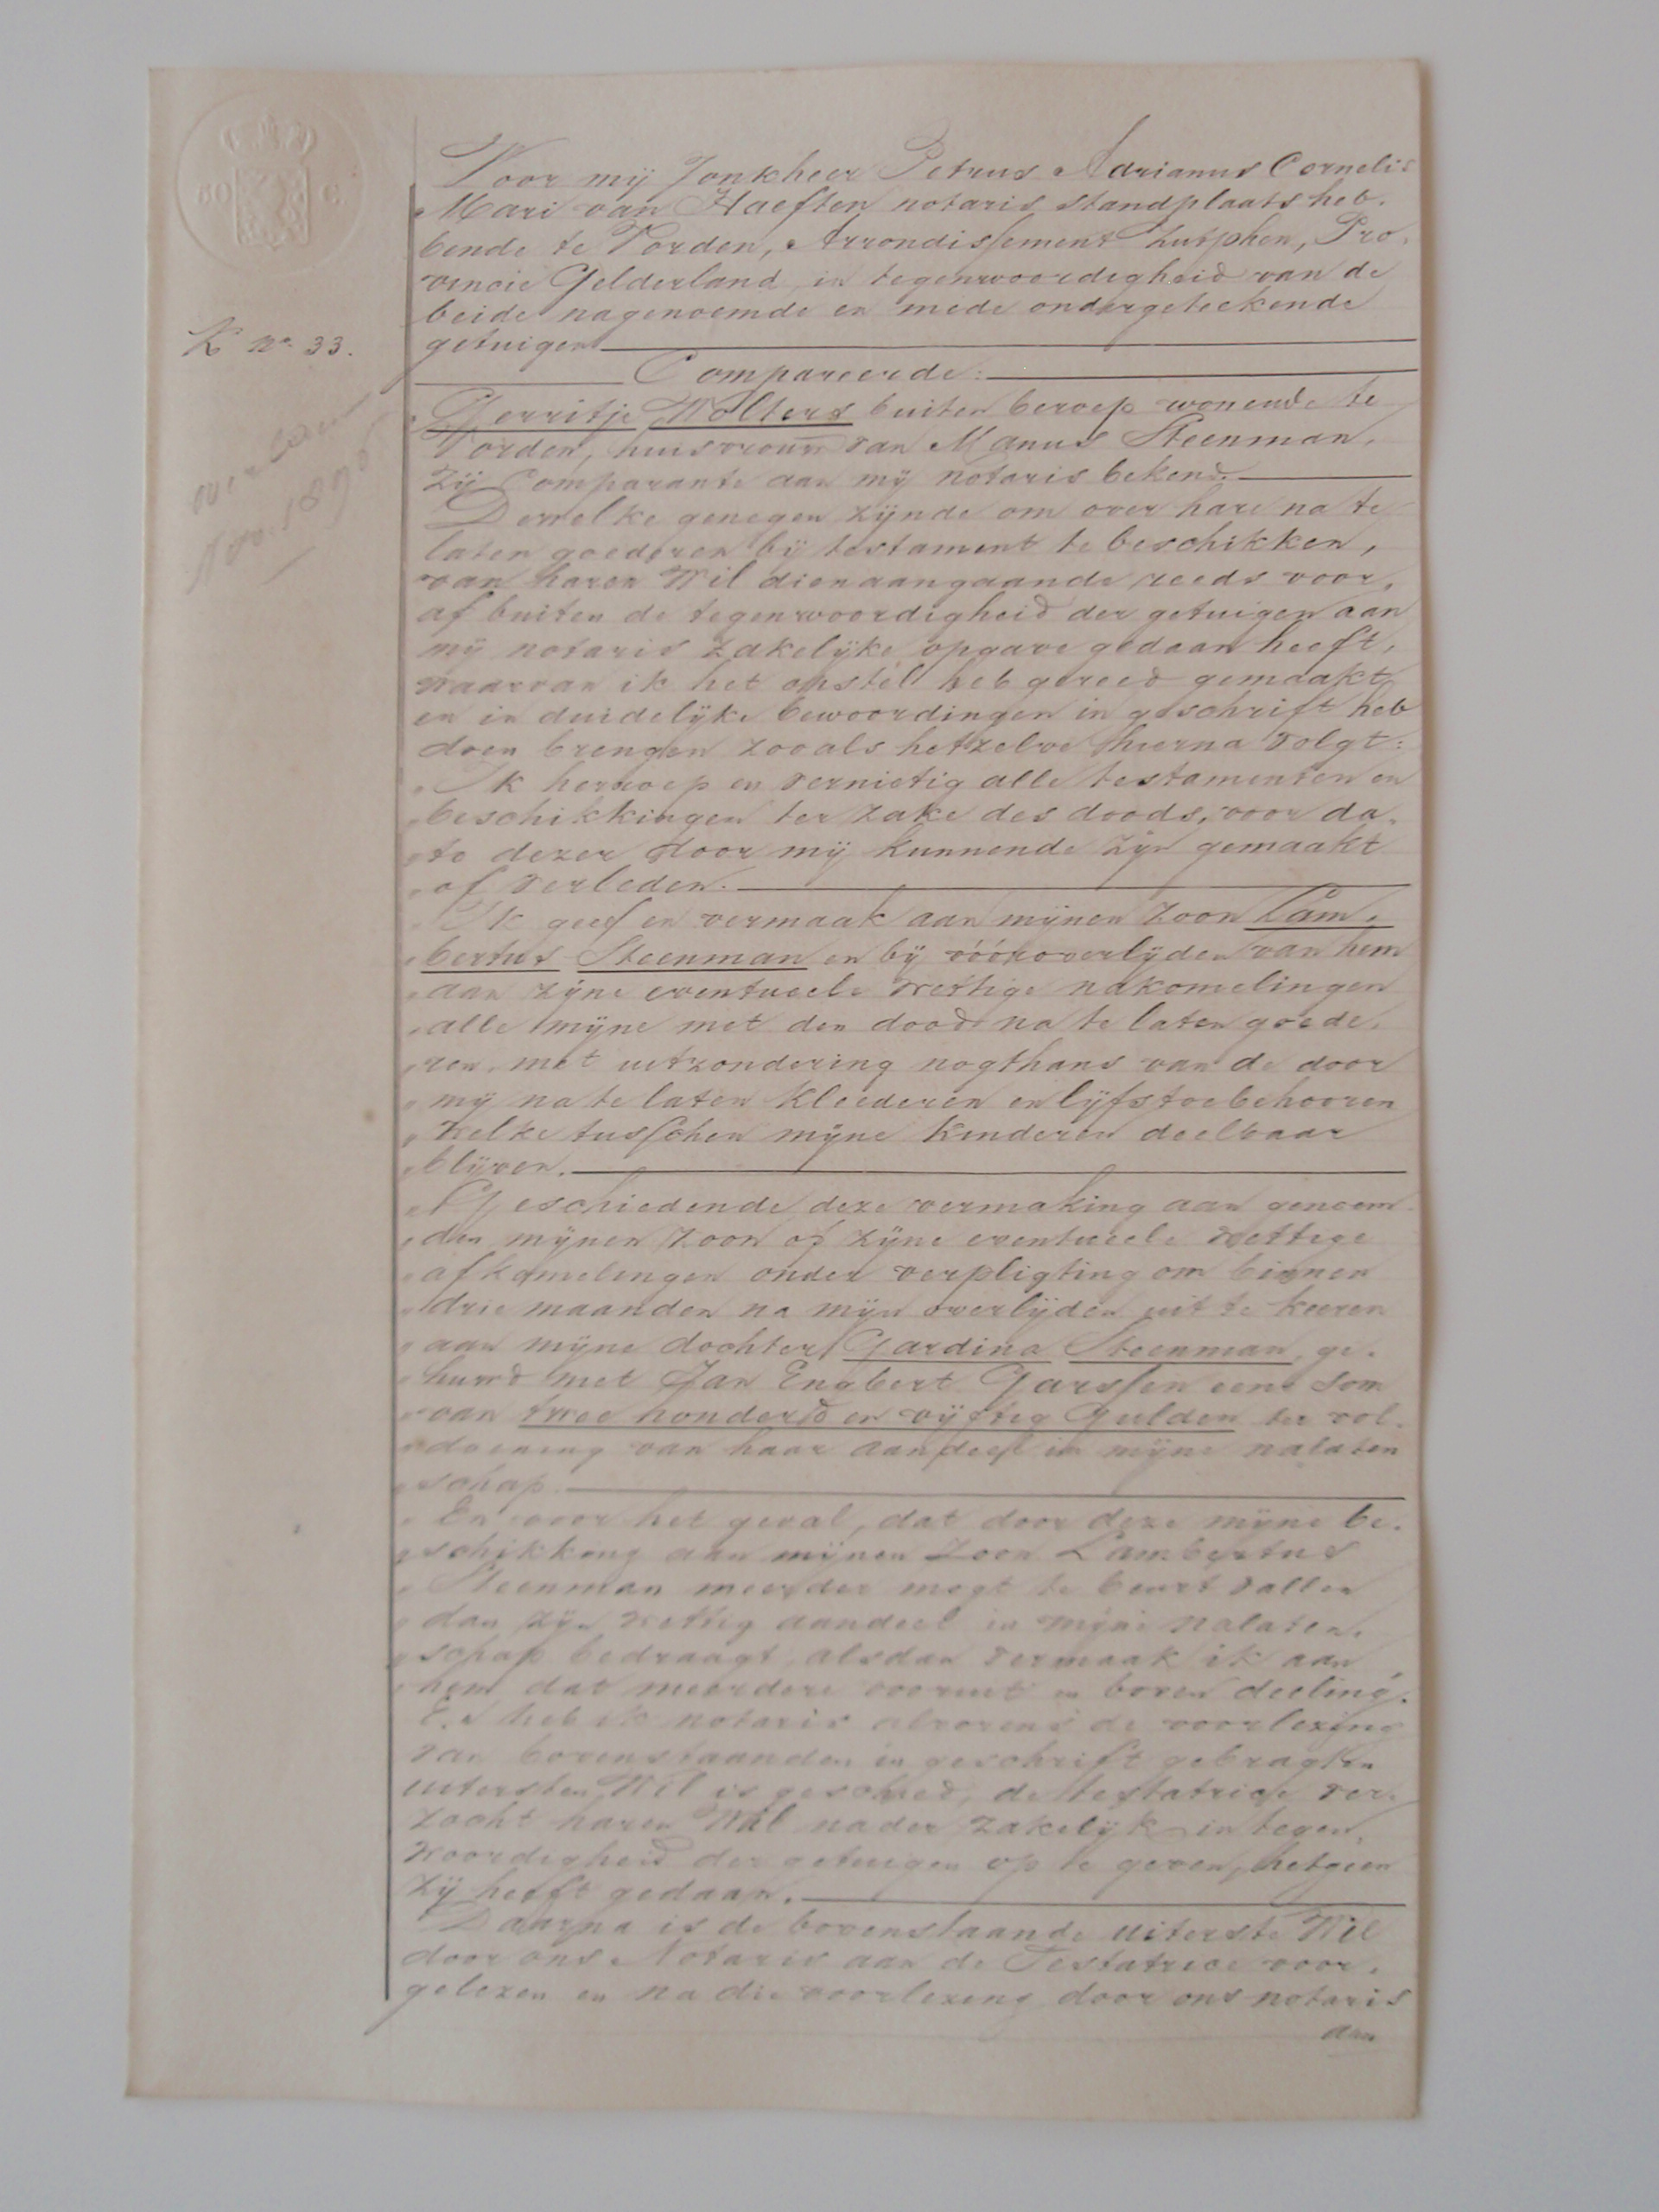 50 C
K no 33.
overl
Nov. 189
Voor mij Jonkheer Petrus Adrianus Cornelis
Mari van Haeften notaris standplaats heb-
bende te Vorden, Arrondissement Zutphen, Pro-
vincie Gelderland, in tegenwoordigheid van de
beide nagenoemde en mede ondergeteekende
getuigen
Compareerde:
Gerritje Wolters buiten beroep wonende te
Vorden, huisvrouw van Manus Steenman.
Zij Comparante aan mij notaris bekend.
Dewelke genegen zijnde om over hare na te
laten goederen bij testament te beschikken,
van haren Wil dienaangaande reeds voor-
af buiten de tegenwoordigheid der getuigen aan
mij notaris zakelijke opgave gedaan heeft,
waarvan ik het opstel heb gereed gemaakt
en in duidelijke bewoordingen in geschrift heb
doen brengen zooals hetzelve hierna volgt:
"Ik herroep en vernietig alle testamenten en
"beschikkingen ter zake des doods, voor da-
"to dezer door mij kunnende zijn gemaakt
"of verleden.
"Ik geef en vermaak aan mijnen zoon Lam-
"bertus Steenman en bij vóóroverlijden van hem
"aan zijne eventueele wettige nakomelingen
"alle mijne met den dood na te laten goede-
"ren, met uitzondering nogthans van de door
"mij na te laten kleederen en lijfstoebehooren
"welke tusschen mijne kinderen deelbaar
"blijven.
"Geschiedende deze vermaking aan genoem-
"den mijnen zoon of zijne eventueele wettige
"afkomelingen onder verpligting om binnen
"drie maanden na mijn overlijden uit te keeren
"aan mijne dochter Gardina Steenman, ge-
"huwd met Jan Engbert Garssen eene som
"van twee honderd en vijftig Gulden ter vol-
"doening van haar aandeel in mijne nalaten
"schap.
"En voor het geval, dat door deze mijne be-
"schikking aan mijnen zoon Lambertus
"Steenman meerder mogt te beurt vallen
"dan zijn wettig aandeel in mijne nalaten-
"schap bedraagt, alsdan vermaak ik aan
"hem dat meerdere vooruit en boven deeling.
En heb ik notaris alvorens de voorlezing
van bovenstaanden in geschrift gebragten
uitersten Wil is geschied, de testatrice ver-
zocht haren Wil nader zakelijk in tegen-
woordigheid der getuigen op te geven, hetgeen
zij heeft gedaan.
Daarna is de bovenstaande uiterste Wil
door ons Notaris aan de Testatrice voor-
gelezen en na die voorlezing door ons notaris
aan